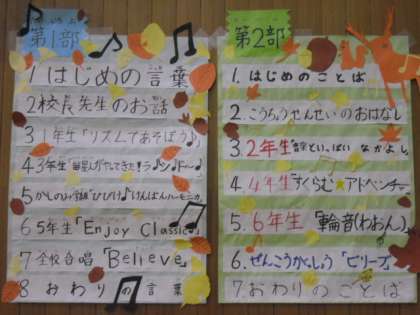 第1部
1はじめの言葉
2校長先生のお話
3 1年生「リズムであそぼう♪」
4 3年生「
5かしのみ学級"ひびけ♪けんばんハーモニカ
6 5年生「Enjoy Classic♪」
7 全校合唱「Believe」
8 おわりの言葉
第2部
1.はじめのことば
2.こうちょうせんせいのおはなし
3.2年生「音楽といっぱい なかよし」
4.4年生「さくらむ★アドベンチャー
5.6年生「輪音(わおん)」
6.ぜんこうがっしょう「ビリーブ」
7おわりのことば